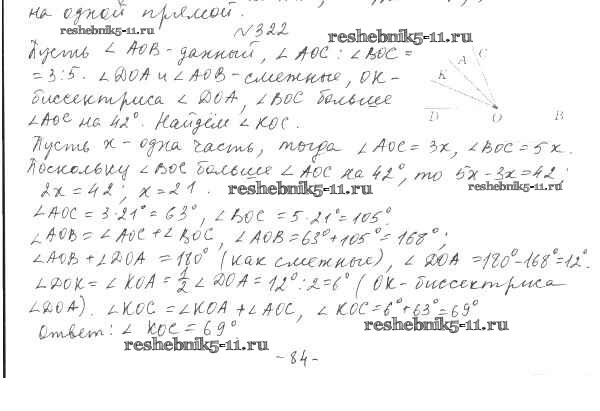 на одной прямой.
reshebnik5-11.ru
N322
reshebnik5-11.ru
Пусть ∠AOB - данный, ∠AOC : ∠BOC =
= 3:5. ∠DOA и ∠AOB - смежные, OK -
биссектриса ∠DOA, ∠BOC больше
∠AOC на 42°. Найдём ∠KOC.
C
A
K
D O B
Пусть x - одна часть, тогда ∠AOC = 3x, ∠BOC = 5x.
Поскольку ∠BOC больше ∠AOC на 42°, то 5x - 3x = 42;
2x = 42; x = 21.
reshebnik5-11.ru
reshebnik5-11.ru
∠AOC = 3·21° = 63°, ∠BOC = 5·21° = 105°.
∠AOB = ∠AOC + ∠BOC, ∠AOB = 63° + 105° = 168°;
∠AOB + ∠DOA = 180° (как смежные), ∠DOA = 180° - 168° = 12°.
∠DOK = ∠KOA = 1/2 ∠DOA = 12° : 2 = 6° (OK - биссектриса
∠DOA). ∠KOC = ∠KOA + ∠AOC, ∠KOC = 6° + 63° = 69°
reshebnik5-11.ru
Ответ: ∠KOC = 69°
reshebnik5-11.ru
- 84 -